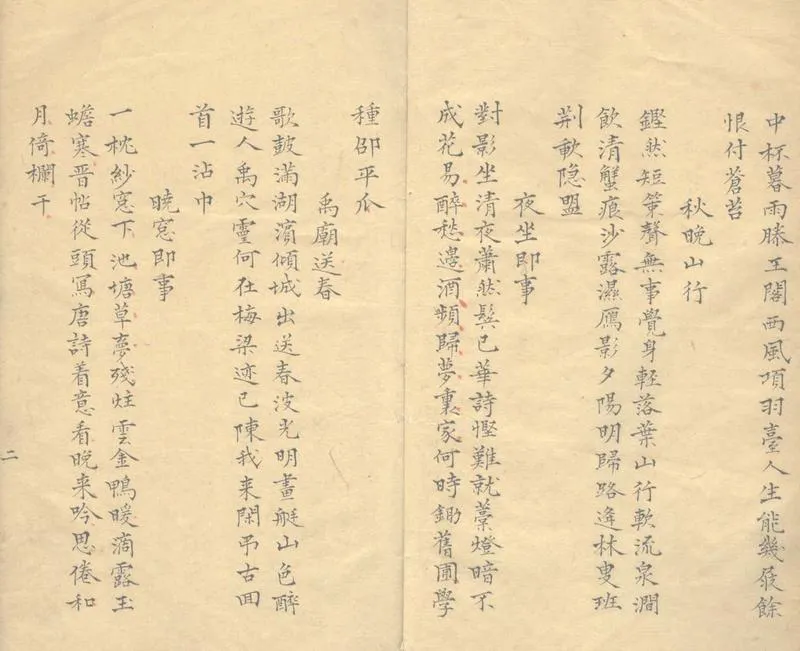 中杯暮雨滕王閣西風項羽臺人生能幾屐餘
恨付蒼苔
秋晚山行
鏗然短策聲無事覺身輕落葉山行軟流泉澗
飲清蟹痕沙露濕鴈影夕陽明歸路逢林叟班
荆軟隐盟
夜坐即事
對影坐清夜蕭然鬂已華詩慳難就藁燈暗不
成花易醉愁邊酒頻歸夢裏家何時鋤舊圃學
種邵平瓜
禹廟送春
歌鼓滿湖濱傾城出送春波光明畫艇山色醉
遊人禹穴靈何在梅梁迹已陳我来閑弔古囬
首一沾巾
暁窓即事
一枕紗窓下池塘草夢殘炷雲金鴨暖滴露玉
蟾寒晋帖從頭寫唐詩着意看晩来吟思倦和
月倚欄干
二